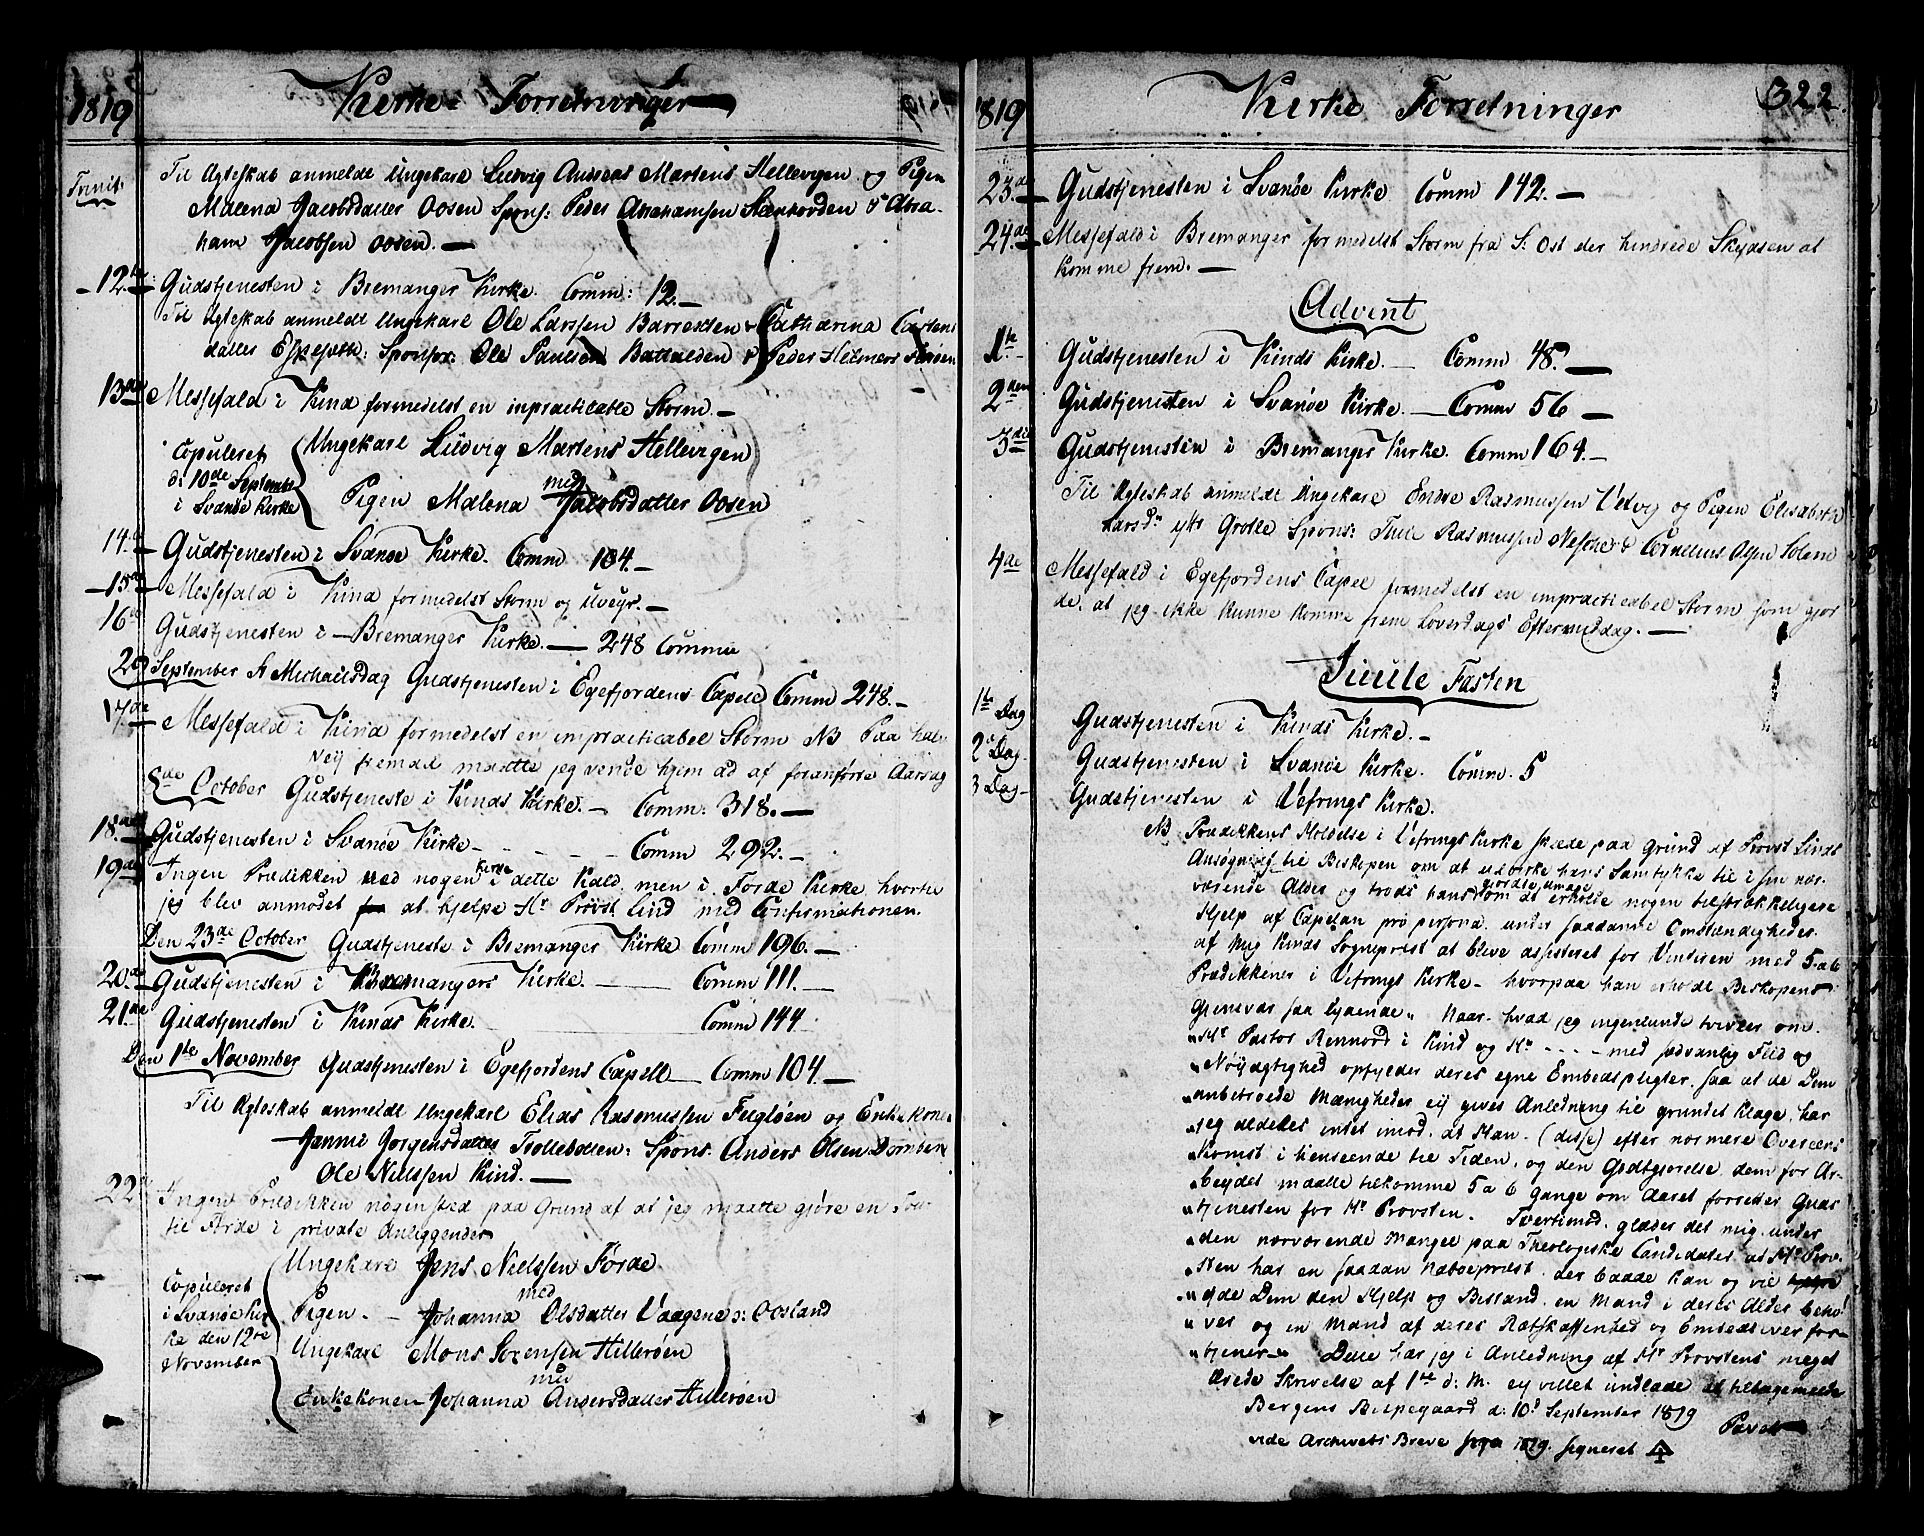 1819 Kirke Forretninger
Trinit:
Til Ægteskab anmeldt Ungekarl Ludvig Andreas Martens Hellevigen og Pigen
Malena Jacobsdatter Oosen Spons: Peder Abrahamsen Stænhovden & Abra-
ham Jacobsen Oosen. —
12te Gudstjenesten i Bremanger Kirke. Comm: 12. —
Til Ægteskab anmeldt Ungekarl Ole Larssen Barrestten & Catharina Carstens
datter Espesætte: Sponsor: Ole Paulsen Battalden & Peder Helmers
13de Messefald i Kind formedelst en inpracticable Storm. —
Copuleret
d: 10de September
i Svanøe Kirke
Ungekarl Ludvig Martens Hellevigen
med
Pigen Malena Jacobsdatter Oosen
14de Gudstjenesten i Svanøe Kirke. Comm 104. —
15de Messefald i Kind formedelst Storm og Uveyr. —
16de Gudstjenesten i Bremanger Kirke. — 248 Comm
29 September St Michaelsdag Gudstjenesten i Egefjordens Capel Comm 248. —
17de Messefald i Kind formedelst en impracticabel Storm NB Paa halv
Vej fremad maatte jeg vende hjem ad af foranførte Aarsag
8de October Gudstjeneste i Kinds Kirke. — Comm: 318. —
18de Gudstjenesten i Svanøe Kirke - - - - - Comm 292. —
19de Ingen Prædikken ved nogen Kirke i dette Kald men i Førde Kirke hvortil
jeg blev anmodet for at hjelpe Hr Provst Lind med Confirmationen.
Den 23de October Gudstjeneste i Bremanger Kirke Comm 196. —
20de Gudstjenesten i Bremangers Kirke. — Comm 111. —
21de Gudstjenesten i Kinds Kirke. Comm 144
Den 1te November Gudstjenesten i Egefjordens Capell — Comm 104. —
Til Ægteskab anmeldt Ungekarl Elias Rasmussen Fugløen og Enkekone
Janne Jørgensdatter Trollebotten: Spons. Anders Olsen
Ole Nielssen Kind. —
22de Ingen Prædikken nogensted paa Grund af at jeg maatte gjøre en Tour
til Førde i private Anliggender
Copuleret
i Svanøe Kir
ke den 12te
November
Ungekarl Jens Nielssen Førde
med
Pigen - Johanna Olsdatter Vaagene Oosland
Ungekarl Mons Sørensen Hillerøen
med
Enkekonen Johanna Andersdatter Hillerøen
1819 Kirke Forretninger 322
23de Gudstjenesten i Svanøe Kirke Comm 142. —
24de Messefald i Bremanger formedelst Storm fra S: Ost der hindrede Skydsen at
komme frem. —
Advent
1te Gudstjenesten i Kinds Kirke. — Comm 48. —
2den Gudstjenesten i Svanøe Kirke. — Comm 56 —
3die Gudstjenesten i Bremanger Kirke. Comm 164. —
Til Ægteskab anmeldt Ungekarl Endre Rasmussen Vedvig og Pigen Elisabeth
Larsdr ytr Grotle Spons: Thue Rasmussen & Cornelius Olsen
4de Messefald i Egefjordens Capel formedelst en impracticabel Storm som gjor
de, at jeg ikke kunne komme frem Løverdags Eftermiddag. —
Juule Fasten
1te Dag Gudstjenesten i Kinds Kirke. —
2d Dag Gudstjenesten i Svanøe Kirke. Comm. 5
3 Dag — Gudstjenesten i Vefrings Kirke.
NB Prædikkens Holdelse i Vefrings Kirke skede paa Grund af Provst Linds
Ansøgn af til Biskopen om at udvirke hans Samtykke til i sin nær-
værende Alder og trods hans gjordte Umage om at erholde nogen tilstrækkeligere
Hjelp af Capelan pro persona under saadanne Omstændigheder
af Mig Kinds Sogneprest at blive assisteret for Vinteren med 5 a 6
Prædikkener i Vefrings Kirke — hvorpaa han erholdt Biskopens
Giensvar saa lydende „ Naar, hvad jeg ingenlunde tvivler om.
„Hr Pastor Rennord i Kind og Hr - - - - med sædvanlig Flid og
„Nøyagtighed opfylder deres egne Embedspligter, saa at de Dem
„anbetroede Menigheder ej gives Anledning til grundet Klage, har
„jeg aldeles intet imod, at Man. (disse) efter nærmere Overeens
„komst i henseende til Tiden, og den Godtgjørelse dem for Ar-
„beydet maatte tilkomme 5 a 6 Gange om Aaret forretter Guds
„tjenesten for Hr Provsten. Tvertimod, glæder det mig, under
„den nærværende Mangel paa Theologiske Candidater, at Hr Prov-
„sten har en saadan Naboepræst, der baade kan og vil
„yde Dem den Hjelp og Bistand, en Mand i deres Alder behø
„ver og en Mand af deres Retskaffenhed og Embedsiver for-
„tjener —„ Dette har jeg i Anledning af Hr Provstens meget
ærede Skrivelse af 1te d: M. ej villet undlade at tilbagemelde
Bergens Bispegaard d: 10d September 1819 Pavels
vide Archivets Breve 1819. signeret A